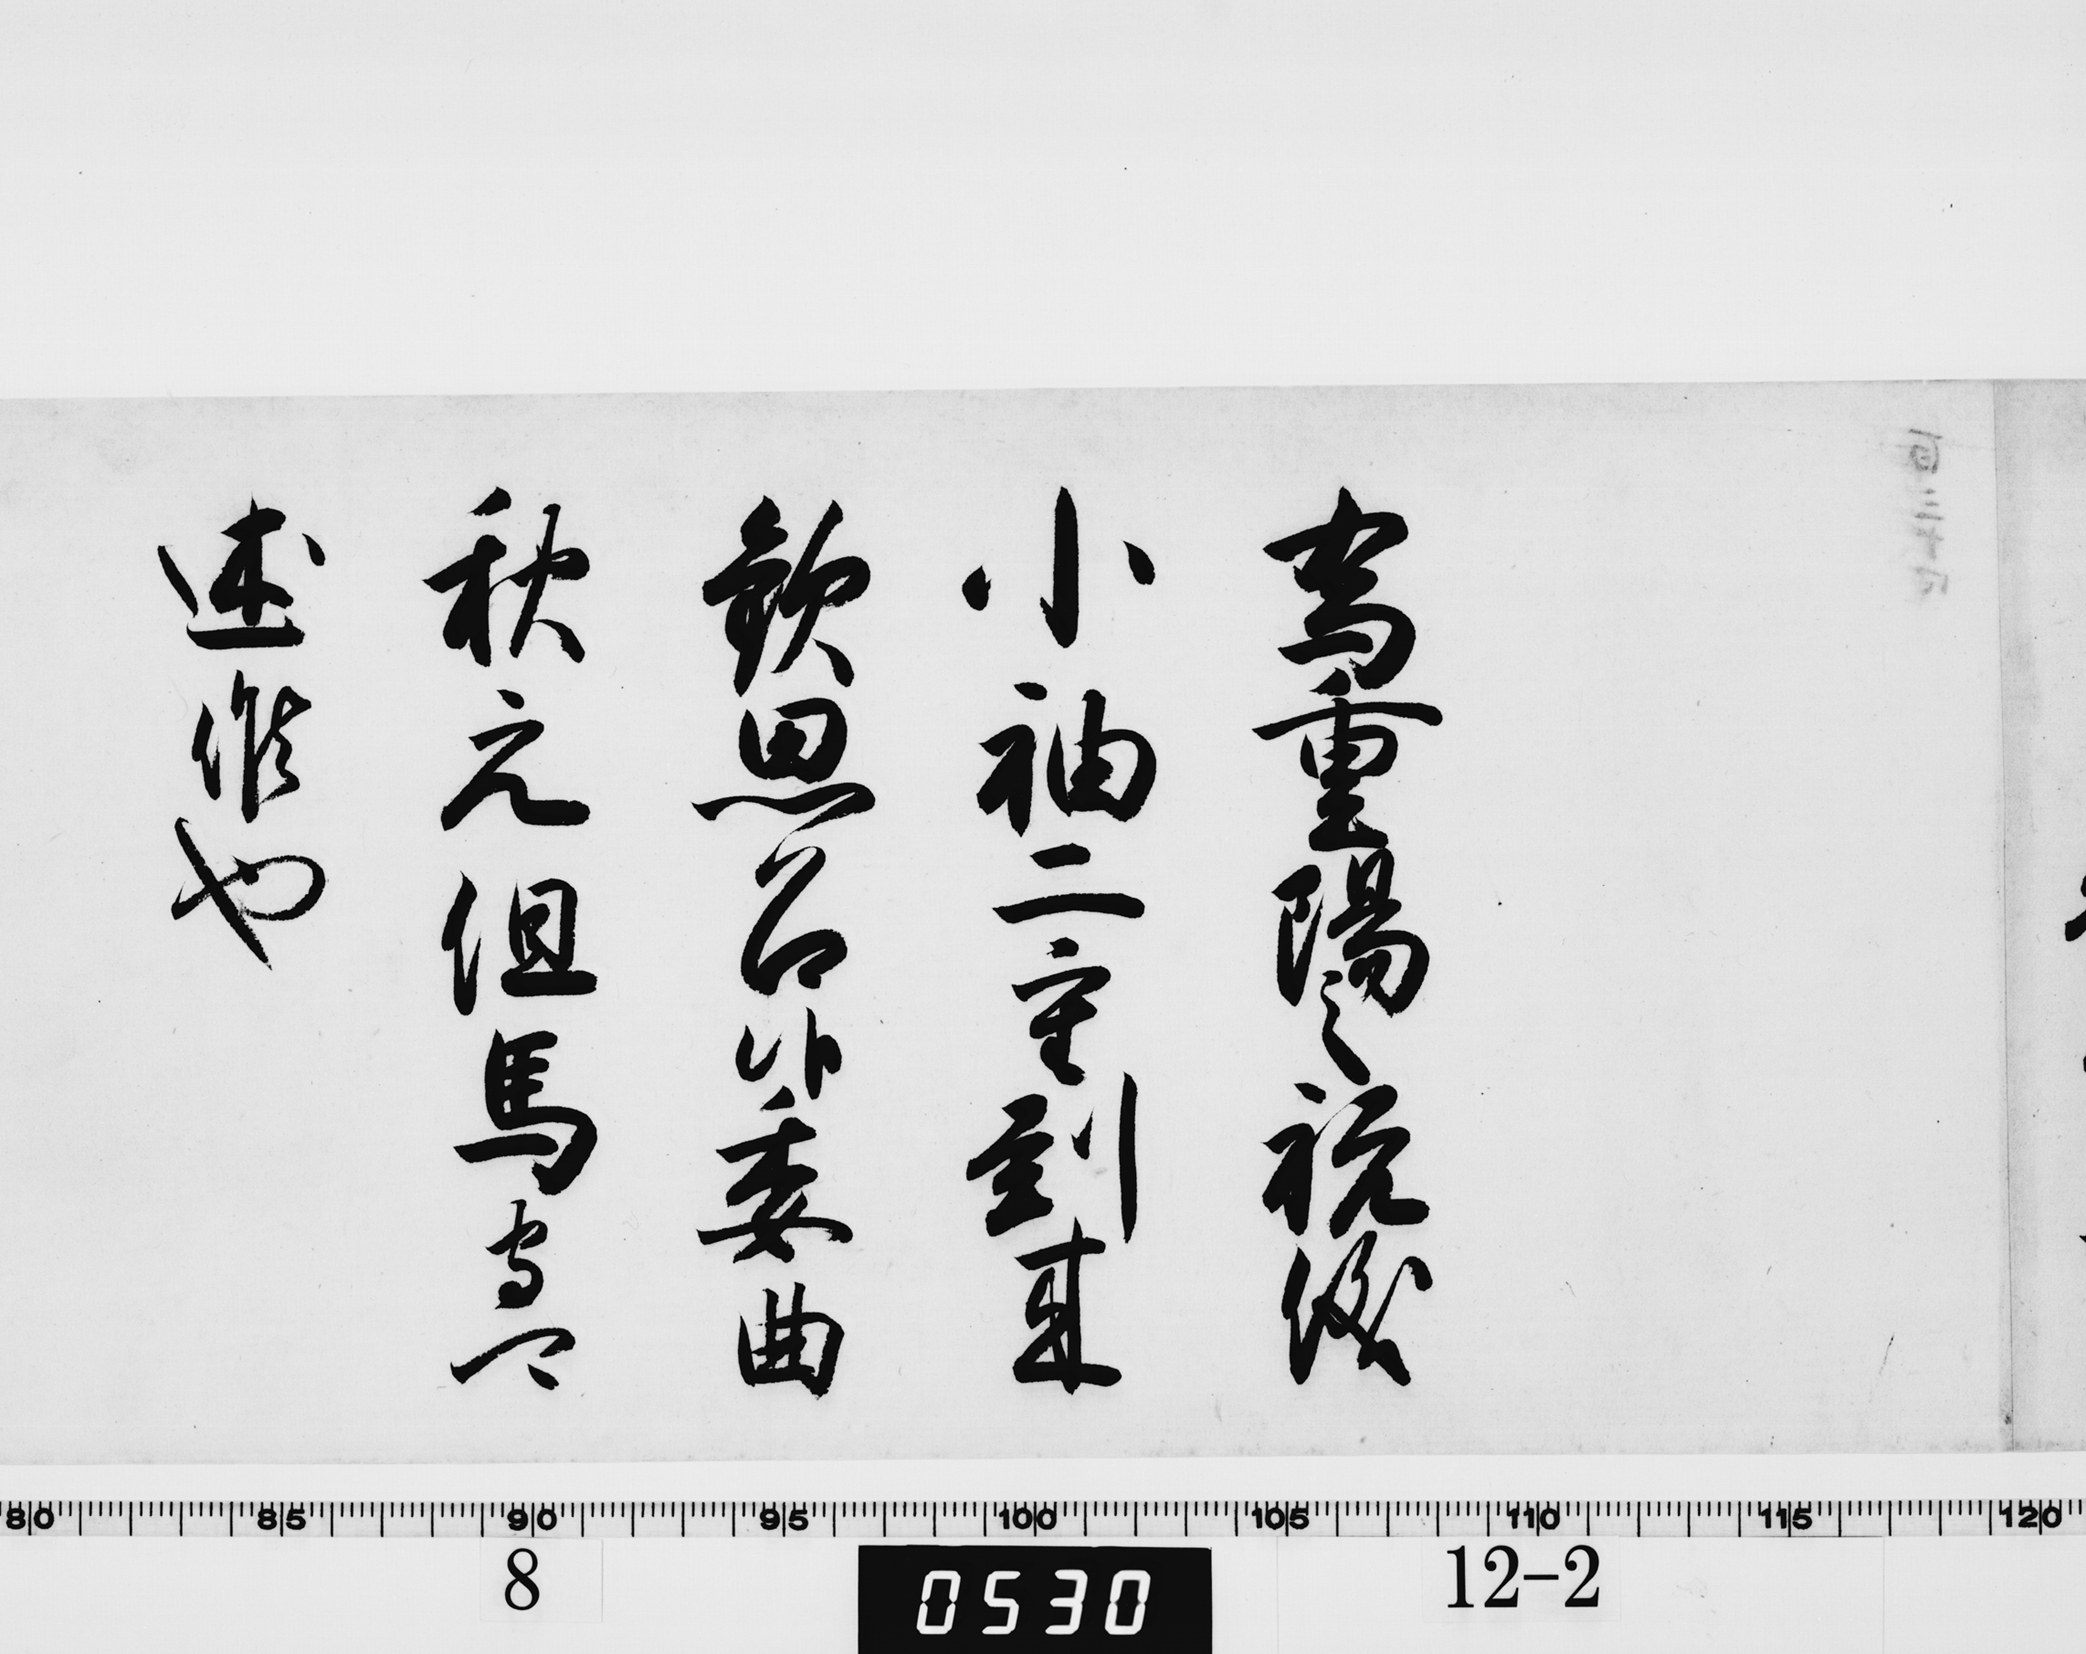 為重陽之祝儀
小袖二重到来
歓思召候委曲
秋元但馬守可
述候也
80 85 90 95 100 105 110 115 120
8 0530 12-2